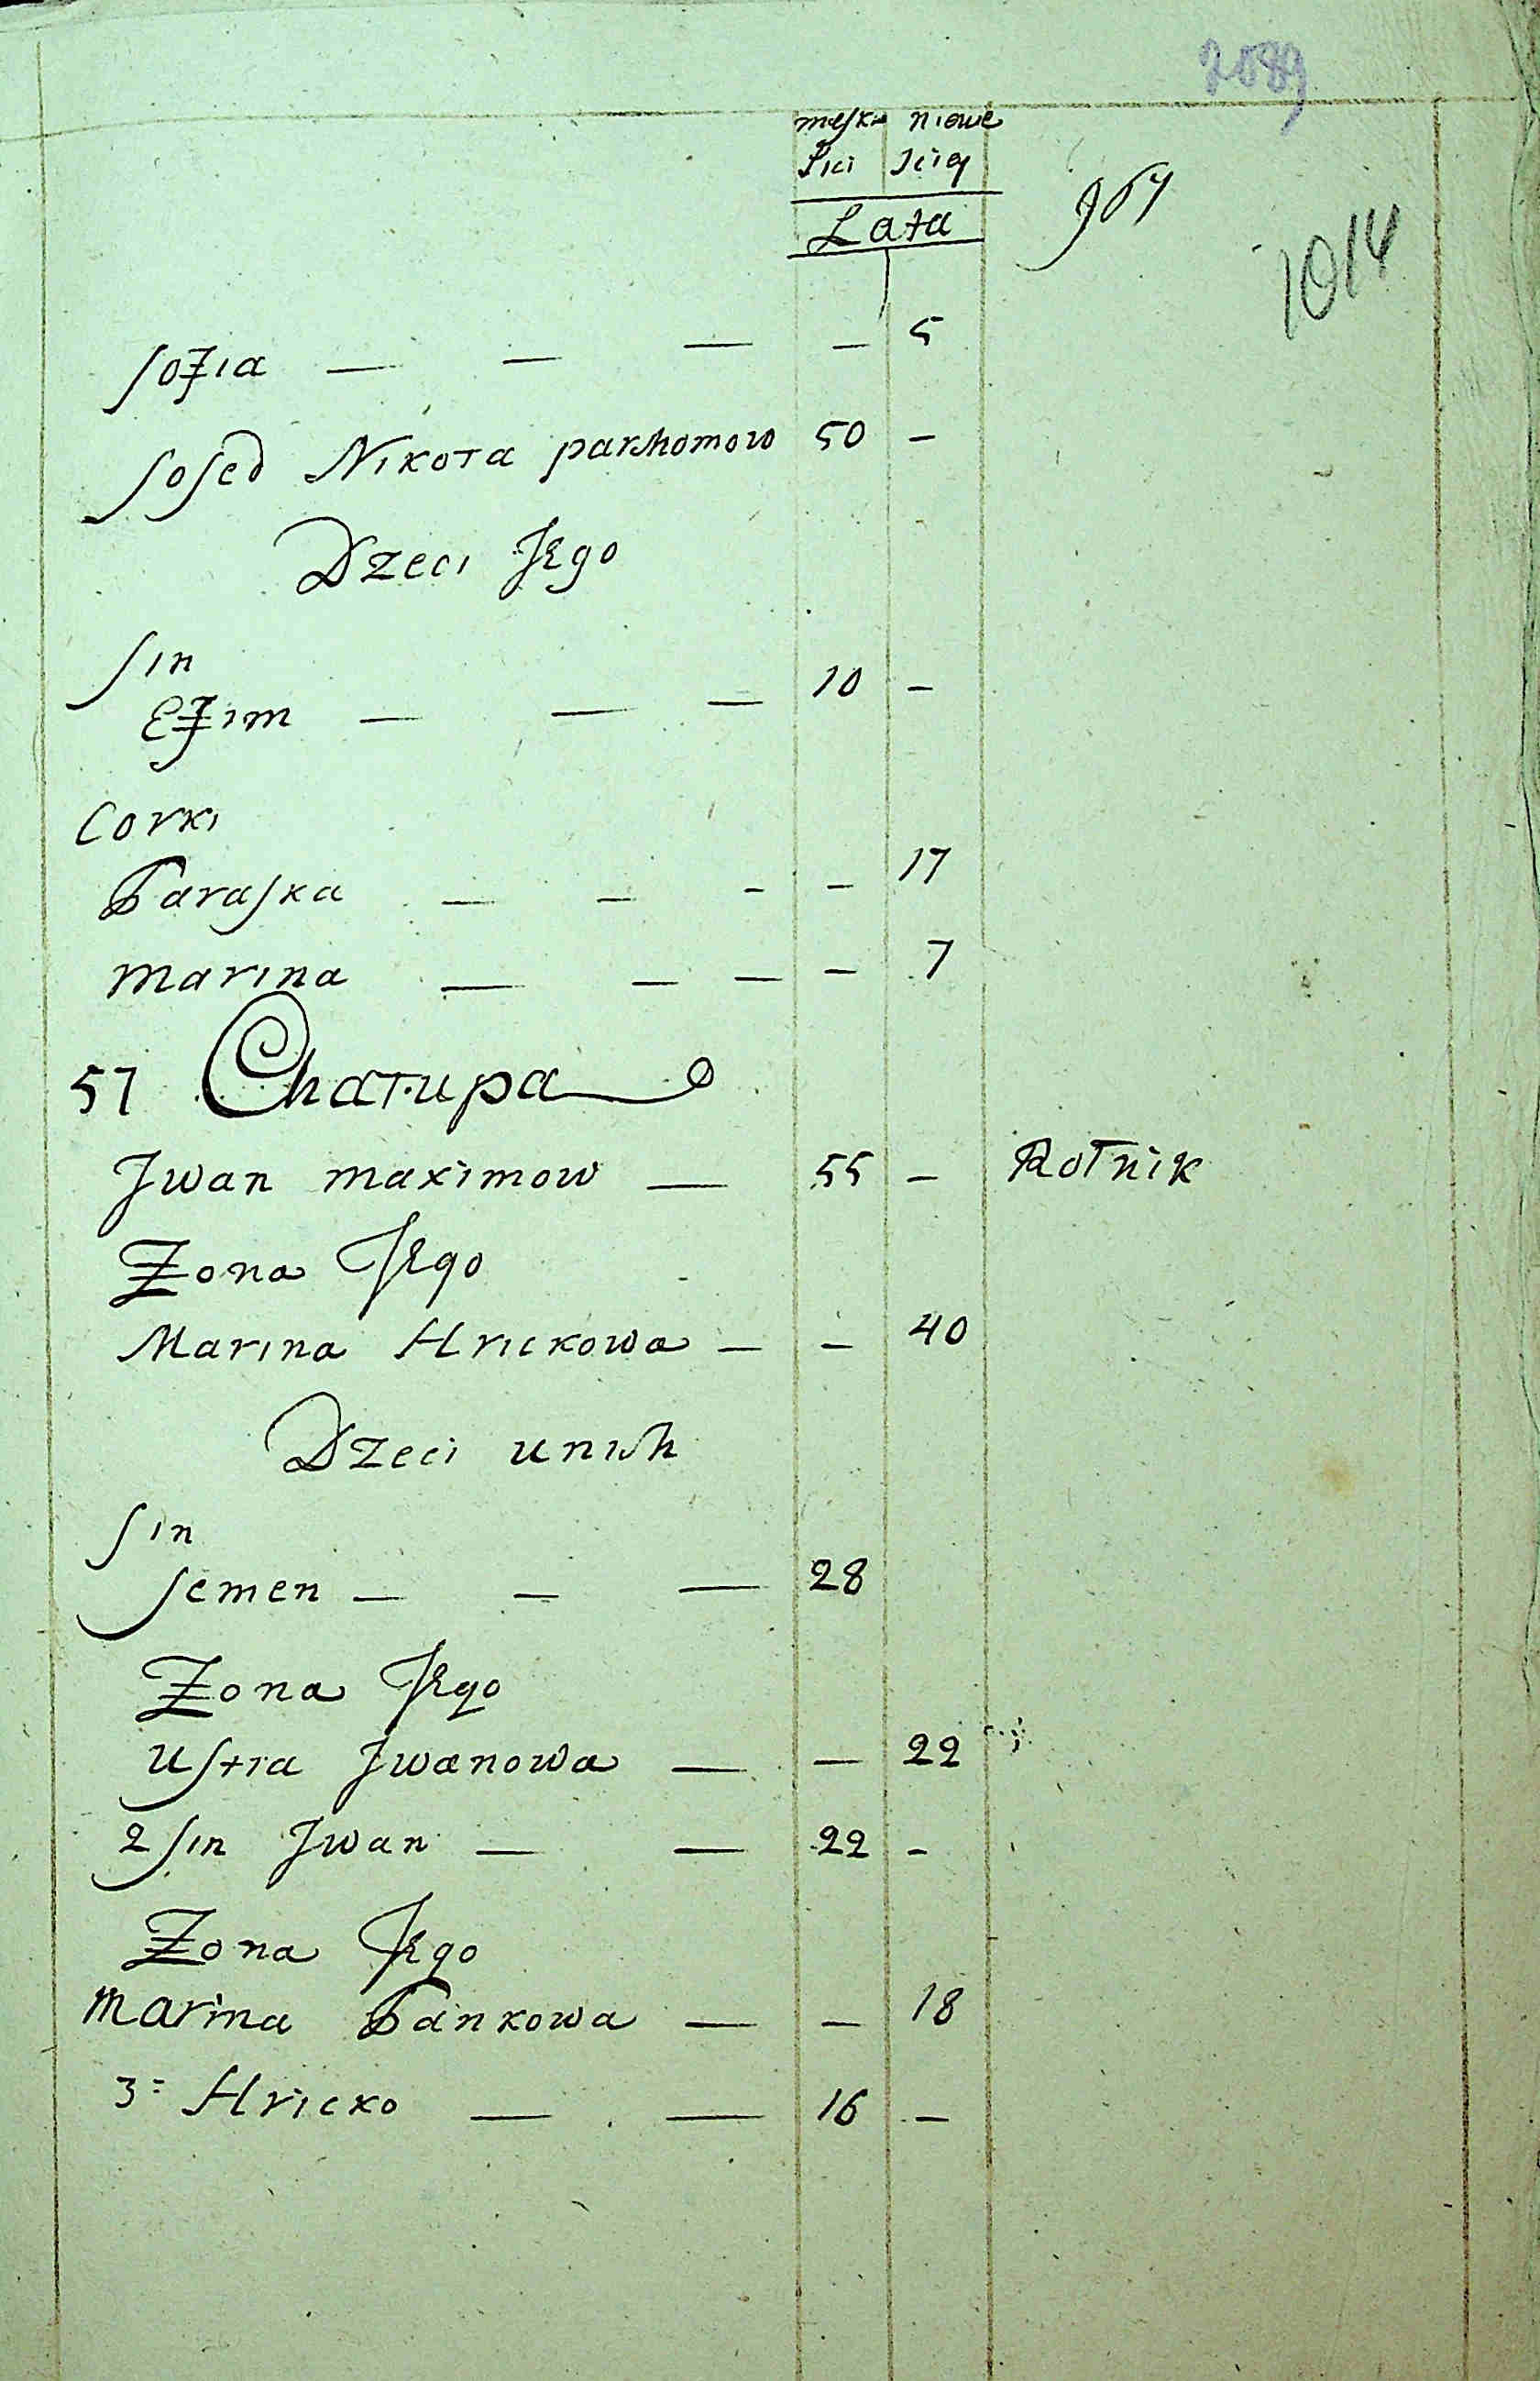 2089
męska niewie
Płci scięj
Lata
964
1014
Sofia — — — — 5
Sosed Nikoła parchomow 50 -
Dzeci Jego
Sin
Efim — — — 10 -
Corki
Paraska — — - - 17
marina — — — - 7
57 Chałupa
Jwan maximow — 55 - Rolnik
Zona Jego
Marina Hrickowa — - 40
Dzeci unich
Sin
Semen — — — 28
Zona Jego
Ustia Jwanowa — — 22
2 Sin Jwan — — 22 -
Zona Jego
Marina Pankowa — — 18
3= Hricko — — 16 —